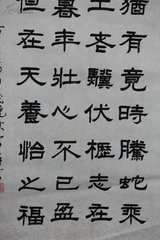 猶有竟時騰蛇乘
灰老驥伏櫪志在
暮年壯心不已盈
但在天養怡之福